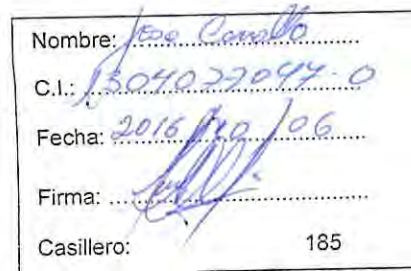 Nombre: Jose Cevallo
C.I.: 1304027047-0
Fecha: 2016/10/06
Firma:
Casillero: 185